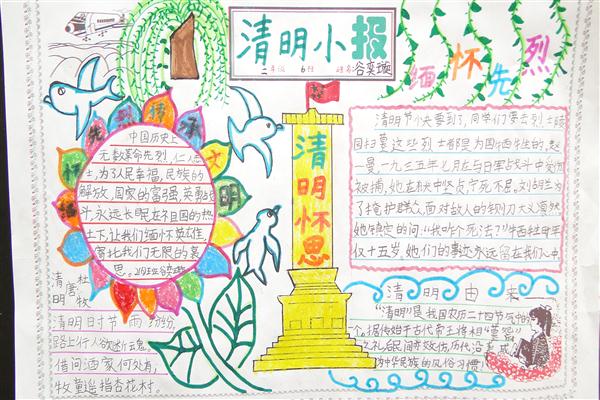 清明小报
二年级 6班 姓名:谷奕璇
缅怀先烈
缅怀先烈 传承文明
中国历史上
无数革命先烈,仁人志
士,为了人民幸福,民族的
解放,国家的富强,英勇奋
斗,永远长眠在祖国的热
土下,让我们缅怀
寄托我们无限的哀
思。 谷奕璇
清明
唐 杜牧
清明时节雨纷纷,
路上行人欲断魂。
借问酒家何处有,
牧童遥指杏花村。
清明怀思
清明节小央要到了,同学们要去烈士陵
园扫墓这些烈士都是为国牺牲的,赵
一曼,一九三五年七月在与日军战斗中
被捕,她在狱中坚贞,宁死不屈。刘胡兰为
了掩护群众,面对敌人的铡刀大义凛然
她镇定的问:“我咋个死法?”牺牲时年
仅十五岁,她们的事迹永远留在我们心中
清明由来
“清明”是我国农历二十四节气中的
一个。据传始于古代帝王将相“墓祭”
之礼,后民间亦效仿,历代沿
为中华民族的风俗习惯